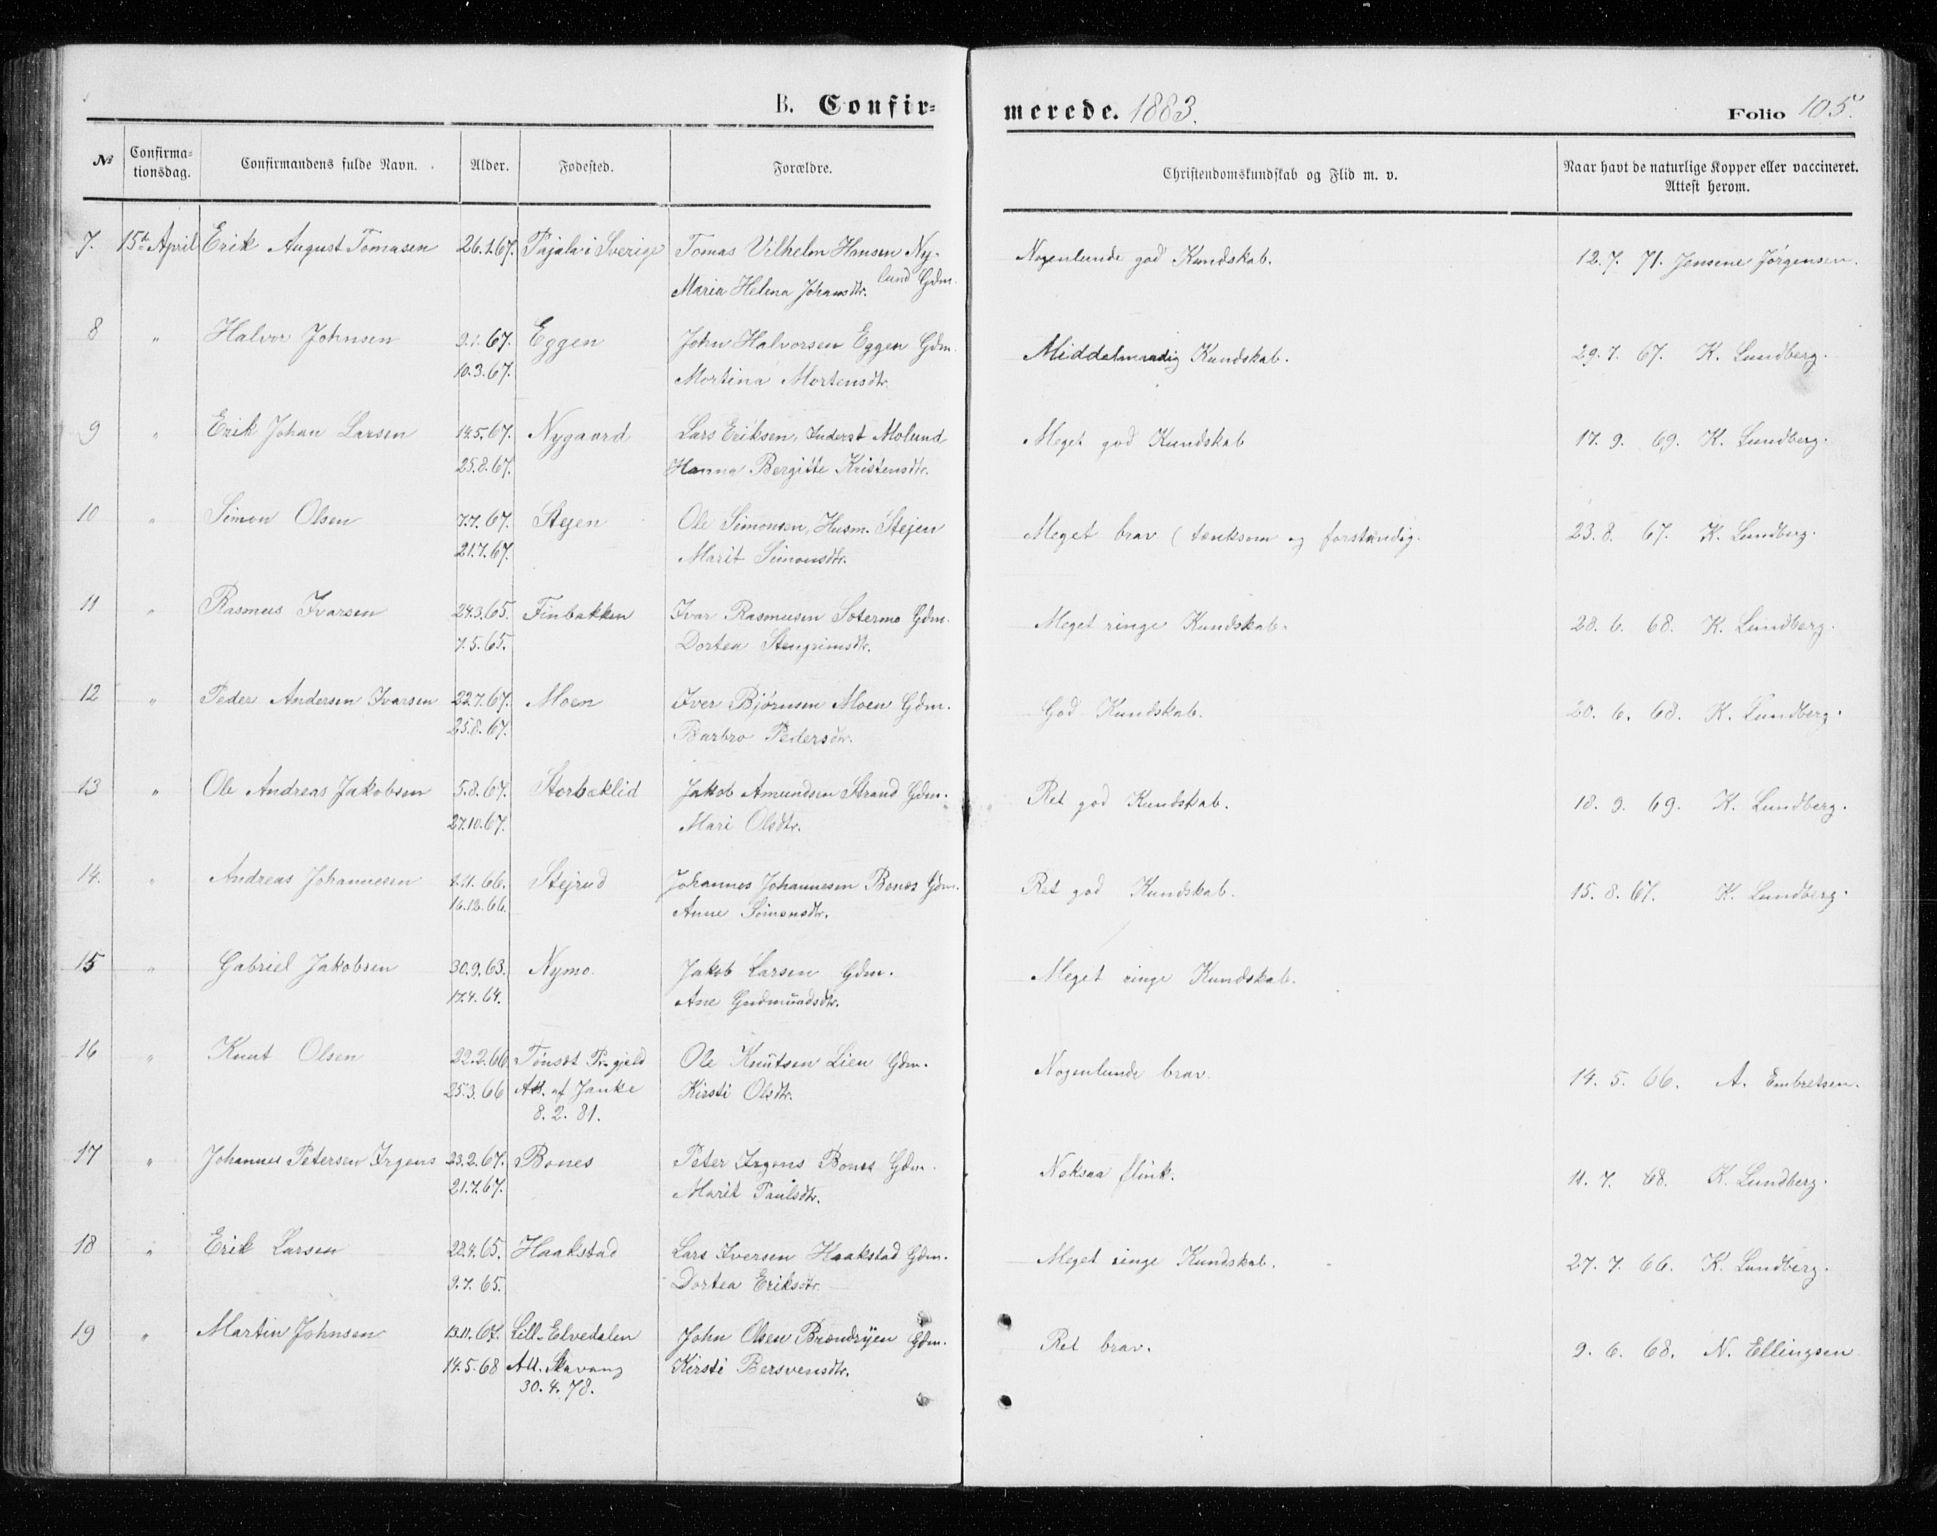 B. Confir=
merede. 1883.
Folio 105.
No
Confirma=
tionsdag.
Confirmandens fulde Navn.
Alder.
Fødested.
Forældre.
Christendomskundskab og Flid m. v.
Naar havt de naturlige Kopper eller vaccineret.
Attest herom.
7. 15de April Erik August Tomasen 26.1.67. Pajala i Sverige Tomas Vilhelm Hansen Ny- Nogenlunde god Kundskab. 12. 7. 71. Jensine Jørgensen.
lund Gdm.
Maria Helena Johansdtr.
8 " Halvor Johnsen 9.1.67. Eggen John Halvorsen Eggen Gdm. Middelmaadig Kundskab. 29. 7. 67. K. Lundberg.
10.3.67. Mortina Mortensdtr.
9 " Erik Johan Larsen 14.5.67. Nygaard Lars Eriksen, Inderst Molund Meget god Kundskab 17. 9. 69. K. Lundberg.
25.8.67. Hanna Bergitte Kristensdtr.
10 " Simon Olsen 7.7.67. Stejen Ole Simonsen, Husm. Stejen Meget brav (tænksom og forstandig. 23. 8. 67. K. Lundberg.
21.7.67. Marit Simonsdtr.
11 " Rasmus Ivarsen 24.3.65. Finbakken Ivar Rasmusen Sotermo Gdm. Meget ringe Kundskab. 28. 6. 68. K. Lundberg.
7.5.65. Dortea Stengrimsdtr.
12 " Peder Andersen Ivarsen 22.7.67. Moen Iver Bjørnsen Moen Gdm. God Kundskab. 20. 6. 68. K. Lundberg.
25.8.67. Barbro Pedersdtr.
13 " Ole Andreas Jakobsen 5.8.67. Storbæklid Jakob Amundsen Strand Gdm. Ret god Kundskab. 18. 9. 69. K. Lundberg.
27.10.67. Mari Olsdtr.
14. " Andreas Johannesen 1.11.66. Stejrud Johannes Johannesen Bones Gdm. Ret god Kundskab. 15. 8. 67. K. Lundberg.
16.12.66. Anne Simonsdtr.
15 " Gabriel Jakobsen 30.9.63. Nymo. Jakob Larsen Gdm. Meget ringe Kundskab.
17.4.64. Ane Gudmundsdtr.
16 " Knut Olsen 22.2.66 Tønset Pr.gjeld Ole Knutsen Lien Gdm. Nogenlunde brav. 14. 5. 66. A. Embretsen.
25.3.66 Att. af Janke Kirsti Olsdtr.
8. 2. 81.
17 " Johannes Petersen Irgens 23.2.67. Bones Peter Irgens Bones Gdm. Noksaa flink. 11. 7. 68. K. Lundberg.
21.7.67. Marit Paulsdtr.
18 " Erik Larsen 22.4.65. Haakstad Lars Iversen Haakstad Gdm. Meget ringe Kundskab. 27. 7. 66. K. Lundberg.
9.7.65. Dortea Eriksdtr.
19 " Martin Johnsen 13.11.67. Lill-Elvedalen John Olsen Brændryen Gdm. Ret brav. 9. 6. 68. N. Ellingsen
14.5.68 Att. Stavang Kirsti Bersvensdtr.
30. 4. 78.